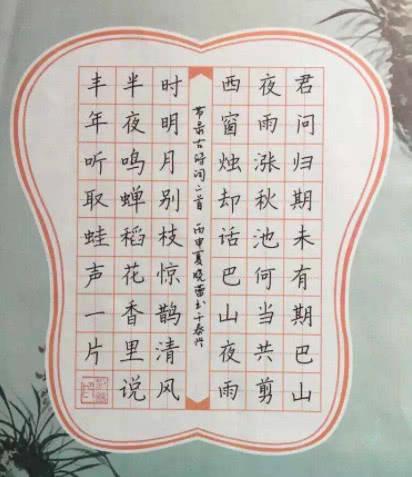 君问归期未有期巴山
夜雨涨秋池何当共剪
西窗烛却话巴山夜雨
节录古诗词二首 丙申夏晓书于泰兴
时明月别枝惊鹊清风
半夜鸣蝉稻花香里说
丰年听取蛙声一片